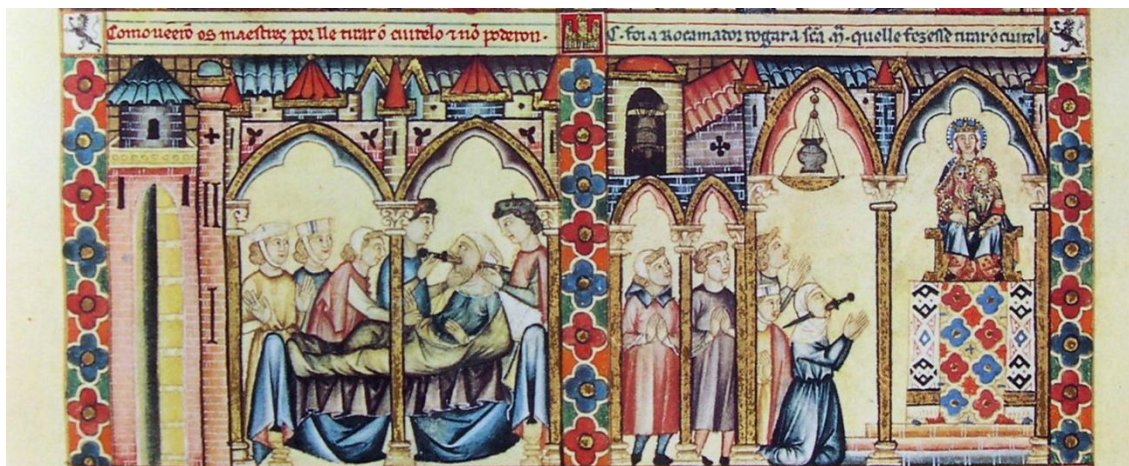 Como ueerõ os maestres por lle tirar õ cuitelo ⁊ nõ poderon ·
C. foi a Rocamador rogar a scã. M̃. quelle fezesse tirar õ cuitelo